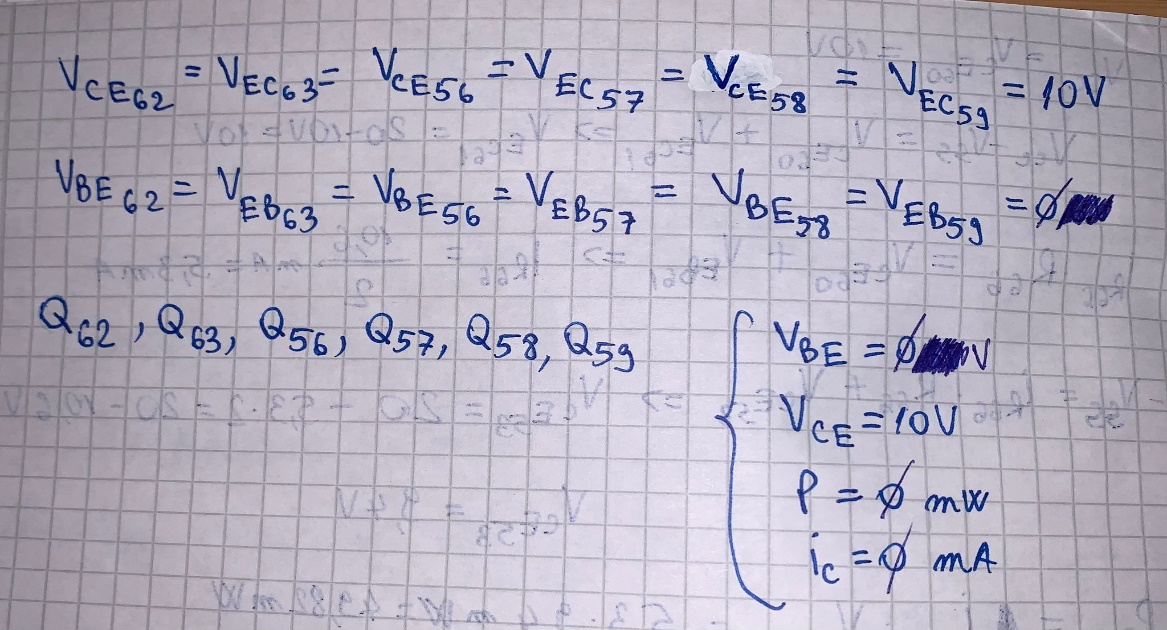 VCE62 = VEC63 = VCE56 = VEC57 = VCE58 = VEC59 = 10V
VBE62 = VEB63 = VBE56 = VEB57 = VBE58 = VEB59 = ∅
Q62, Q63, Q56, Q57, Q58, Q59
VBE = ∅ V
VCE = 10V
P = ∅ mW
ic = ∅ mA